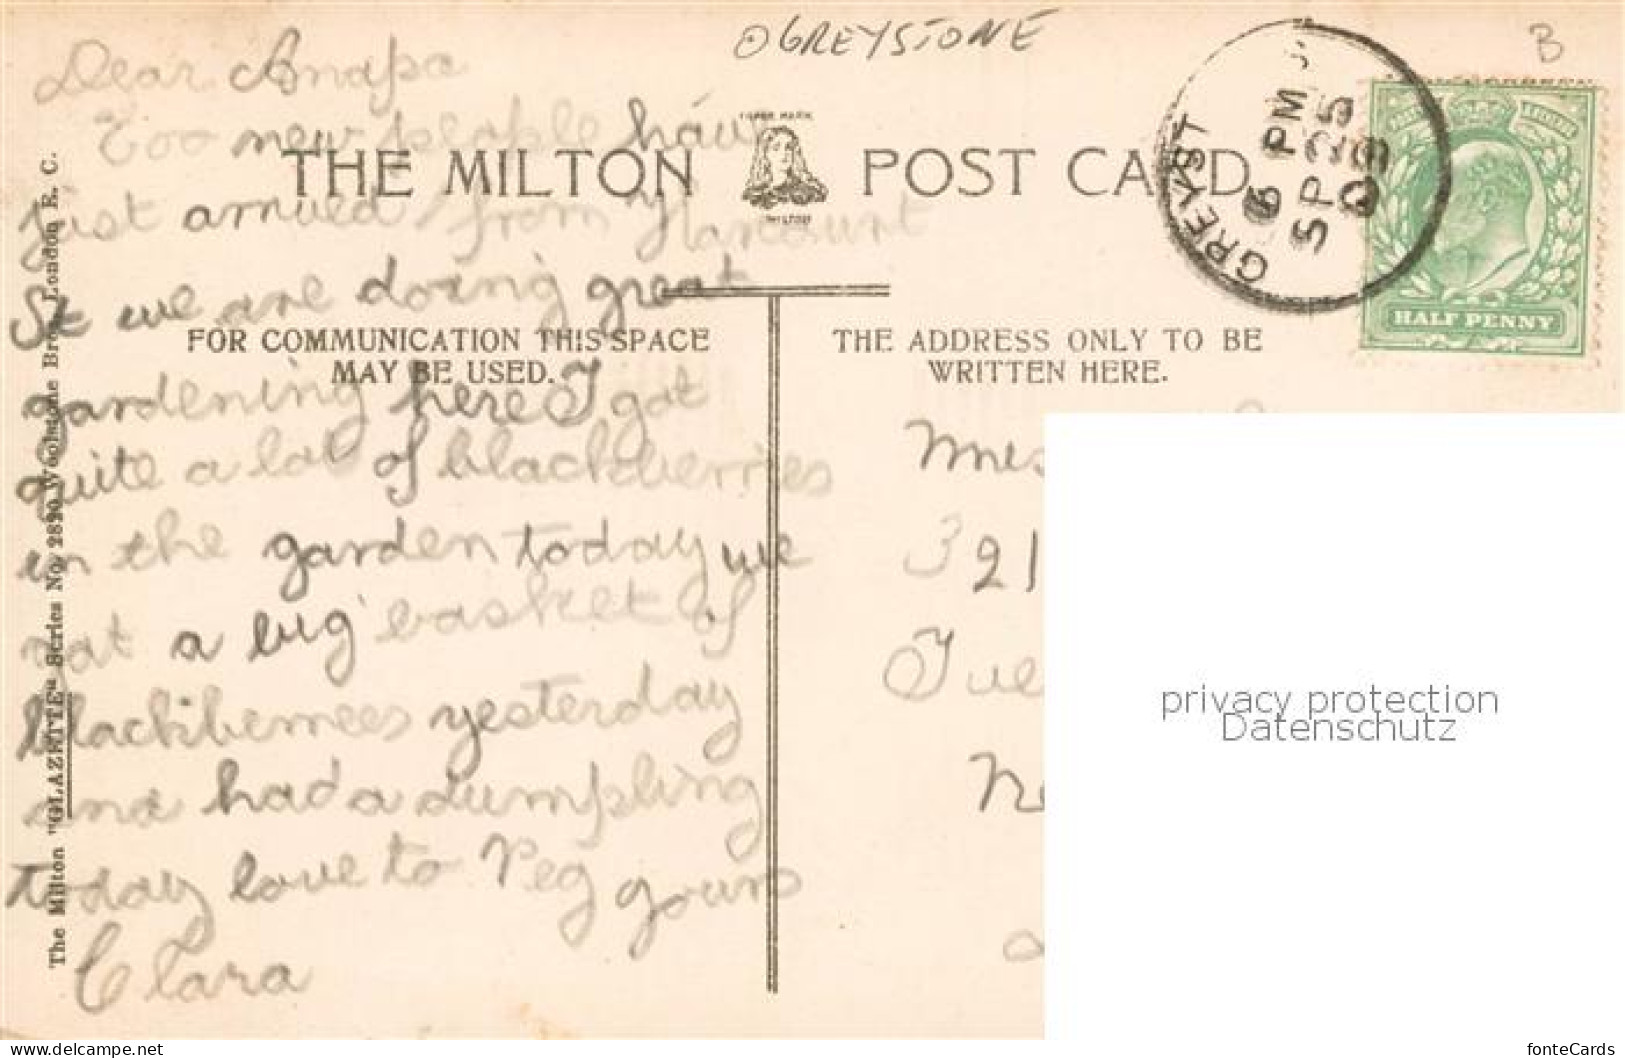 GREYSTONE
B
Dear Anapa
Too new people have
just arrived from Harcourt
St we are doing great
gardening here I got
quite a lot of blackberries
in the garden today we
got a big basket of
blackberrees yesterday
and had a dumpling
today love to Peg yours
Clara
THE MILTON POST CARD
TRADE MARK
MILTON
FOR COMMUNICATION THIS SPACE
MAY BE USED.
THE ADDRESS ONLY TO BE
WRITTEN HERE.
The Milton "GLAZETTE" Series No. 2820 Woolstone Bros., London E. C.
GREYST
6 PM
SP 25
09
HALF PENNY
321
privacy protection
Datenschutz
https://www.delcampe.net
fonteCards